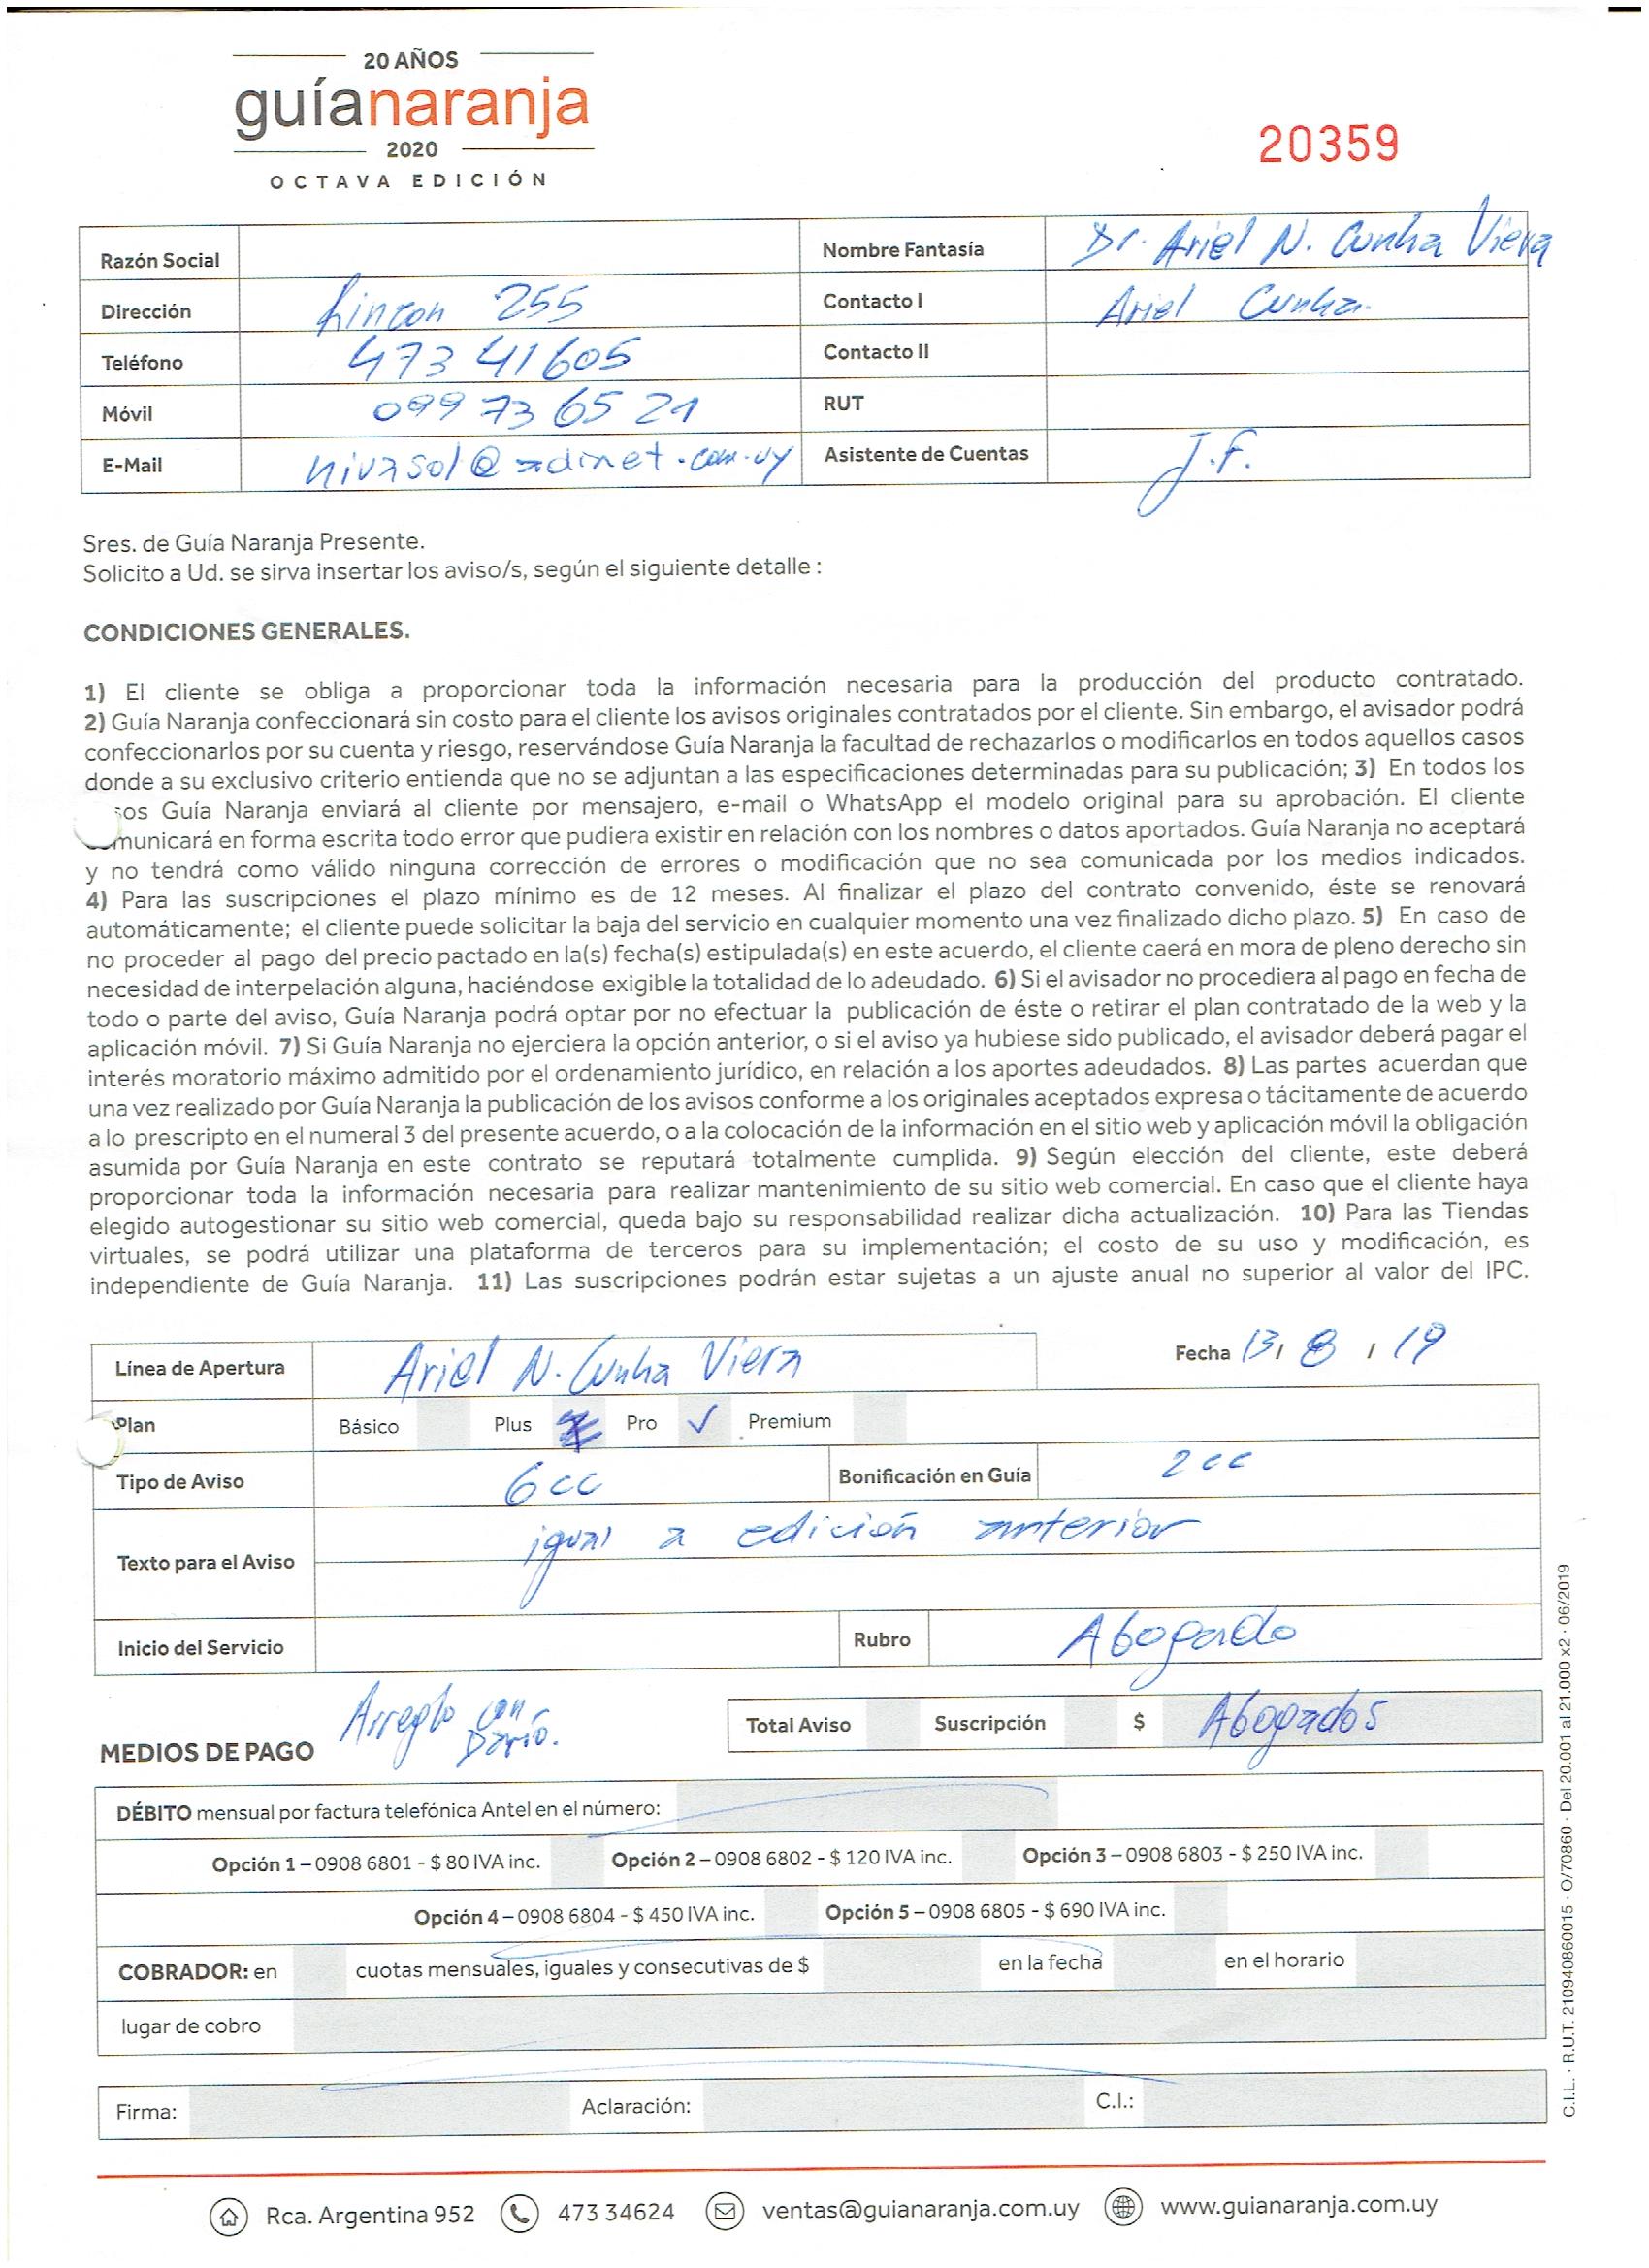 20 AÑOS
guíanaranja
2020
OCTAVA EDICIÓN
20359
Razón Social Nombre Fantasía Dr. Ariel N. Cunha Viera
Dirección Rincon 255 Contacto I Ariel Cunha.
Teléfono 473 41605 Contacto II
Móvil 099 73 65 21 RUT
E-Mail nivasol@adinet.com.uy Asistente de Cuentas J.F.
Sres. de Guía Naranja Presente.
Solicito a Ud. se sirva insertar los aviso/s, según el siguiente detalle :
CONDICIONES GENERALES.
1) El cliente se obliga a proporcionar toda la información necesaria para la producción del producto contratado.
2) Guía Naranja confeccionará sin costo para el cliente los avisos originales contratados por el cliente. Sin embargo, el avisador podrá
confeccionarlos por su cuenta y riesgo, reservándose Guía Naranja la facultad de rechazarlos o modificarlos en todos aquellos casos
donde a su exclusivo criterio entienda que no se adjuntan a las especificaciones determinadas para su publicación; 3) En todos los
sos Guía Naranja enviará al cliente por mensajero, e-mail o WhatsApp el modelo original para su aprobación. El cliente
municará en forma escrita todo error que pudiera existir en relación con los nombres o datos aportados. Guía Naranja no aceptará
y no tendrá como válido ninguna corrección de errores o modificación que no sea comunicada por los medios indicados.
4) Para las suscripciones el plazo mínimo es de 12 meses. Al finalizar el plazo del contrato convenido, éste se renovará
automáticamente; el cliente puede solicitar la baja del servicio en cualquier momento una vez finalizado dicho plazo. 5) En caso de
no proceder al pago del precio pactado en la(s) fecha(s) estipulada(s) en este acuerdo, el cliente caerá en mora de pleno derecho sin
necesidad de interpelación alguna, haciéndose exigible la totalidad de lo adeudado. 6) Si el avisador no procediera al pago en fecha de
todo o parte del aviso, Guía Naranja podrá optar por no efectuar la publicación de éste o retirar el plan contratado de la web y la
aplicación móvil. 7) Si Guía Naranja no ejerciera la opción anterior, o si el aviso ya hubiese sido publicado, el avisador deberá pagar el
interés moratorio máximo admitido por el ordenamiento jurídico, en relación a los aportes adeudados. 8) Las partes acuerdan que
una vez realizado por Guía Naranja la publicación de los avisos conforme a los originales aceptados expresa o tácitamente de acuerdo
a lo prescripto en el numeral 3 del presente acuerdo, o a la colocación de la información en el sitio web y aplicación móvil la obligación
asumida por Guía Naranja en este contrato se reputará totalmente cumplida. 9) Según elección del cliente, este deberá
proporcionar toda la información necesaria para realizar mantenimiento de su sitio web comercial. En caso que el cliente haya
elegido autogestionar su sitio web comercial, queda bajo su responsabilidad realizar dicha actualización. 10) Para las Tiendas
virtuales, se podrá utilizar una plataforma de terceros para su implementación; el costo de su uso y modificación, es
independiente de Guía Naranja. 11) Las suscripciones podrán estar sujetas a un ajuste anual no superior al valor del IPC.
Línea de Apertura Ariel N. Cunha Viera Fecha 13/ 8 / 19
Plan Básico Plus Pro ✓ Premium
Tipo de Aviso 6cc Bonificación en Guía 2cc
Texto para el Aviso igual a edición anterior
Inicio del Servicio Rubro Abogado
Arreglo con Darío.
Total Aviso Suscripción $ Abogados
MEDIOS DE PAGO
DÉBITO mensual por factura telefónica Antel en el número:
Opción 1 – 0908 6801 - $ 80 IVA inc. Opción 2 – 0908 6802 - $ 120 IVA inc. Opción 3 – 0908 6803 - $ 250 IVA inc.
Opción 4 – 0908 6804 - $ 450 IVA inc. Opción 5 – 0908 6805 - $ 690 IVA inc.
COBRADOR: en cuotas mensuales, iguales y consecutivas de $ en la fecha en el horario
lugar de cobro
Firma: Aclaración: C.I.:
C.I.L. · R.U.T. 210940860015 · O/70860 · Del 20.001 al 21.000 x2 · 06/2019
Rca. Argentina 952 473 34624 ventas@guianaranja.com.uy www.guianaranja.com.uy